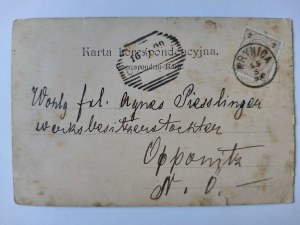 Karta korespondencyjna.
Correspondenz-Karte
KRYNICA
Wohlg. frl. Agnes Piesslinger
werksbesitzerstochter
Opponitz
N. O. —